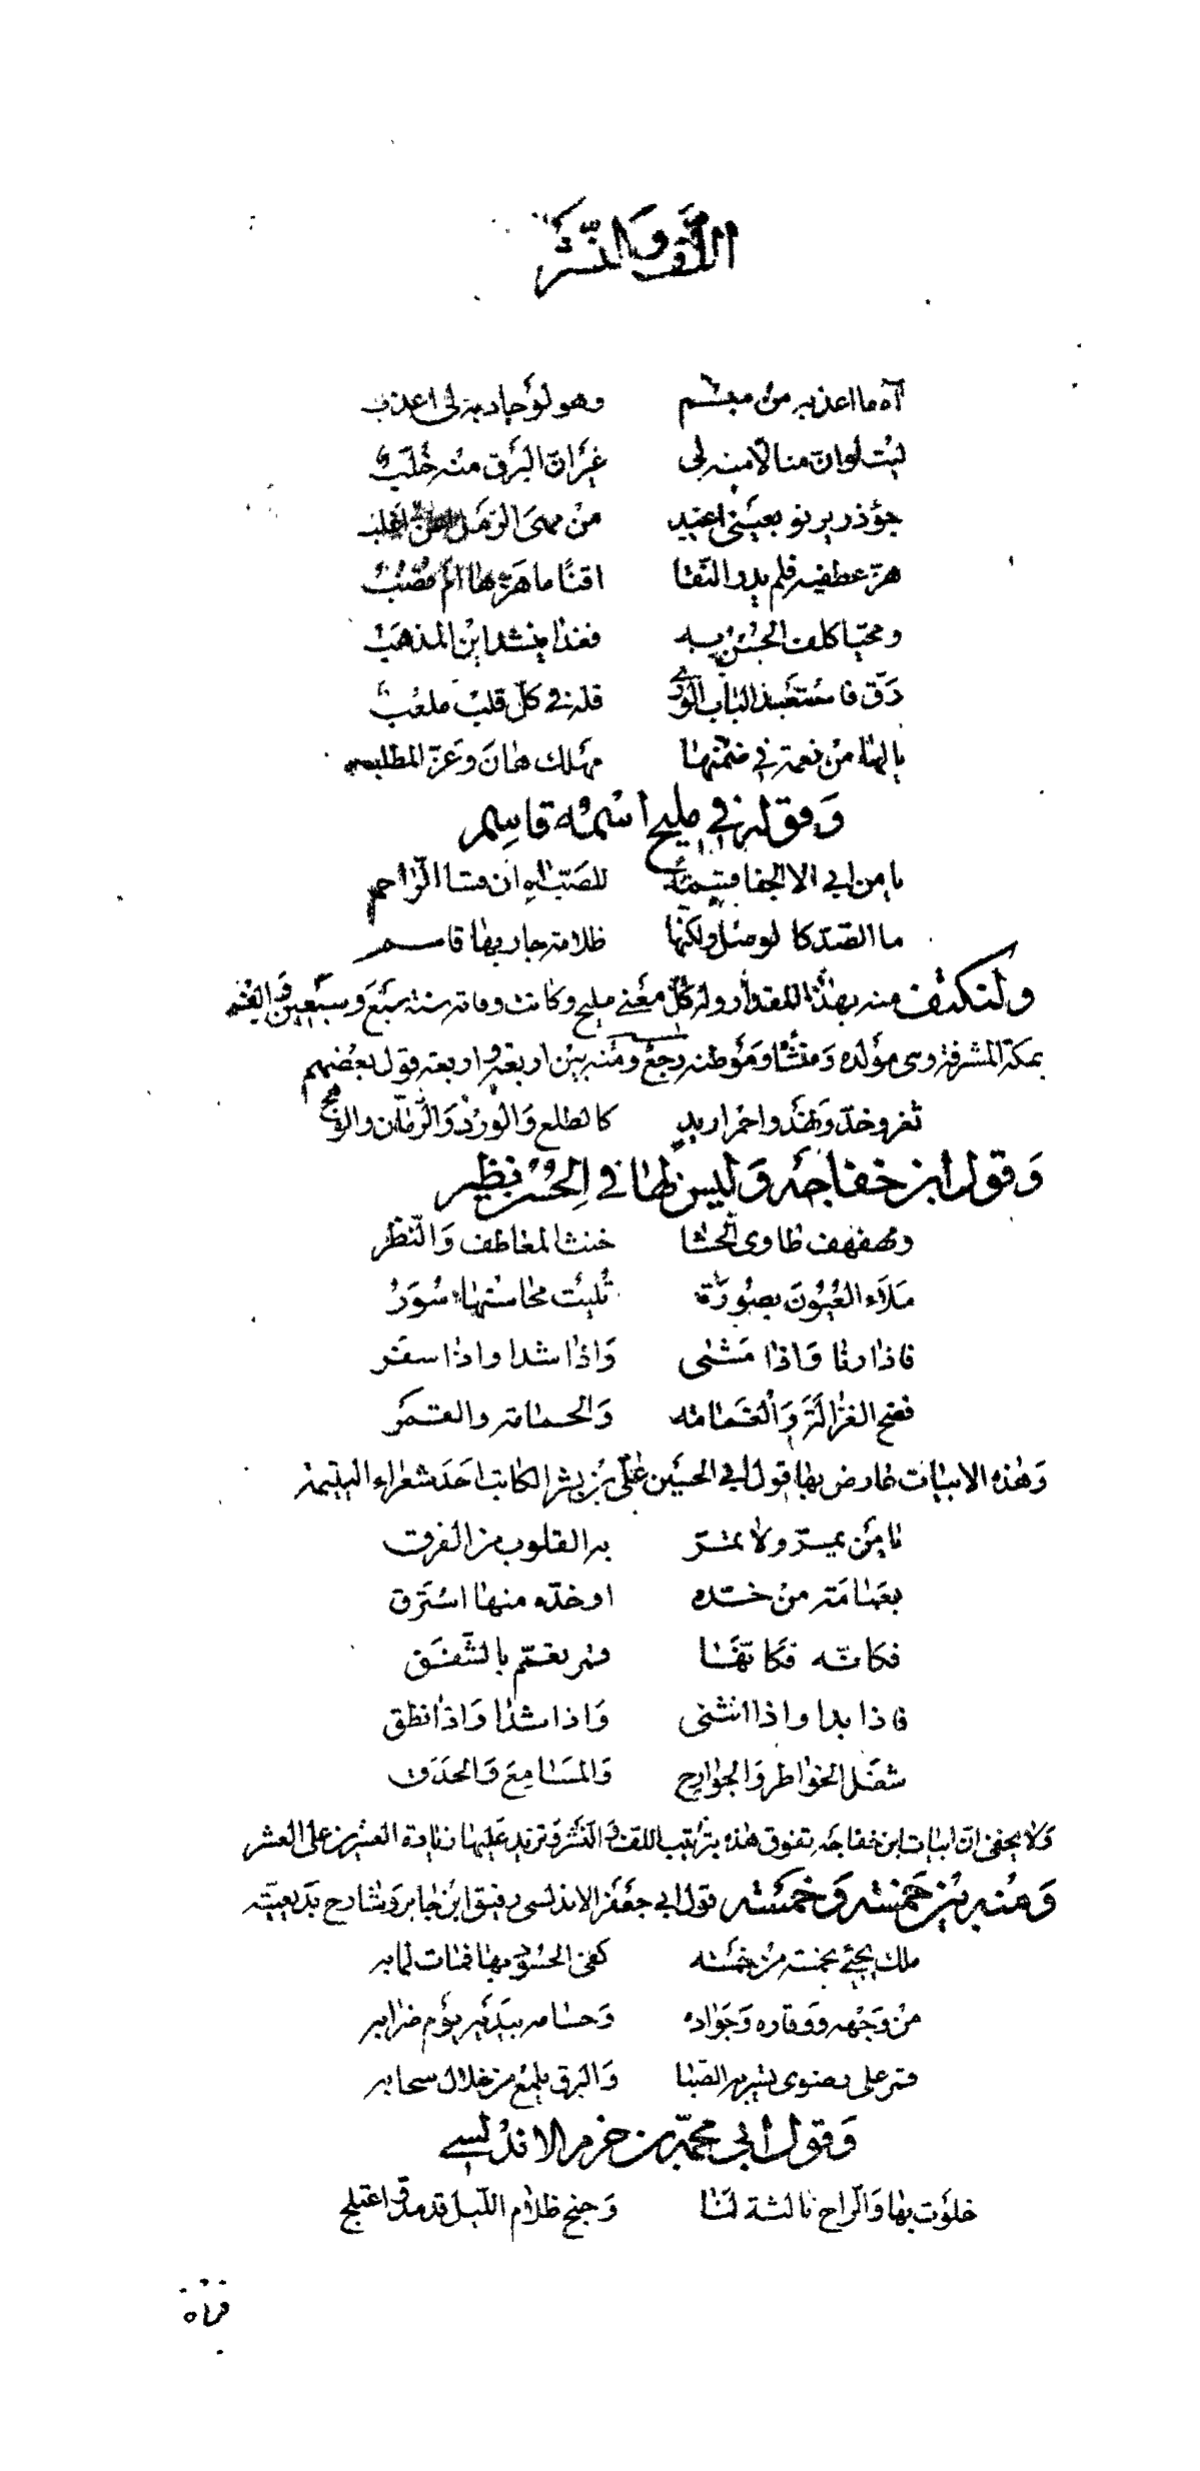 اللف والنشر
آه ما اعذبه من مبسم وهو لو جاد به لى اعذب
ليت لو ان منا لامنه لى غير ان البرق منه خلب
جؤذر يرنو بعينى اغيد من مهى الرمل اغلب
هز عطفيه فلم يدر النقا اقنا ما هزها ام قضب
ومحيا كلف الحسن به فغدا ينشد اين المذهب
دق فاستعبد الباب الورى فله فى كل قلب ملعب
يا لها من نعمة فى ضمنها مهلك هان وعز المطلب
وقوله فى مليح اسمه قاسم
يا من ابى الا الجفا قسمة للصب اله ان مسا الراحم
ما الصد كالوصل ولكنها ظلامة جار بها قاسم
ولنكتف منه بهذا القدر وله كل معنى مليح وكانت وفاته سنة سبع وسبعين والف
بمكة المشرفة وهى مولده ومنشاه وموطنه رجع ومنه بين اربعة واربعة قول بعضهم
ثغر وخد ونهد واحمرار يد كالطلع والورد والرمان والبلح
وقول ابن خفاجه وليس لها فى الحسن نظير
ومهفهف طاوى الحشا خنث المعاطف والنظر
ملاء العيون بصورة تليت محاسنها سور
فاذا رنا واذا مشى واذا شدا واذا سفر
فضح الغزالة والغمامه والحمامة والقمر
وهذه الابيات عارض بها قول ابى الحسين على بن بشر الكاتب احد شعراء اليتيمة
يا من يمر ولا تمر به القلوب من الفرق
بعمامة من خده او خده منها استرق
فكانه فكانها قمر تعمم بالشفق
فاذا بدا واذا انثنى واذا شدا واذا نطق
شغل الخواطر والجوارح والمسامع والحدق
ولا يخفى ان ابيات ابن خفاجه تفوق هذه بترتيب اللف والنشر وتزيد عليها زيادة العشرين على العشر
ومنه بين خمسة وخمسة قول ابى جعفر الاندلسى رفيق ابن جابر وشارح بديعيته
ملك يجئ بخمسة من خمسه كفى الحسود بها فمات لما به
من وجهه ووقاره وجواده وحسامه بيديه يوم ضرابه
قمر على رضوى تسير به الصبا والبرق يلمع من خلال سحابه
وقول ابى محمد بن حزم الاندلسى
خلوت بها والراح ثالثة لنا وجنح ظلام الليل قد مد واعتلج
فتاة